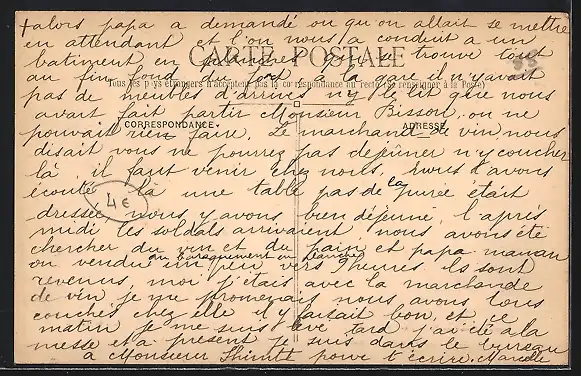 + alors papa a demandé ou qu'on allait se mettre
en attendant et l'on nous a conduit a un
CARTE POSTALE
batiment en planches qui se trouve tout
au fin fond du fort à la gare il n'y avait
Tous les pays étrangers n'acceptent pas la correspondance au recto (se renseigner à la Poste)
pas de meubles d'arrivés n'y le lit que nous
avart fait partir Monsieur Bisson, on ne
CORRESPONDANCE
ADRESSE
pouvait rien faire. Le marchand de vin, nous
disait vous ne pourrez pas déjeuner n'y coucher
là il faut venir chez nous, puis d'avoir
écouté là une table pas de la purée était
4€
dressée nous y avons bien déjeuné, l'après
midi les soldats arrivaient nous avons été
chercher du vin et du pain et papa maman
au baraquement en planches
on vendu un peu vers 9 heures ils sont
revenus, moi j'étais avec la marchande
de vin je me promenais nous avons tous
couchés chez elle il y faisait bon, et ce
matin je me suis levé tard j'ai été à la
messe et a présent je suis dans le bureau
a Monsieur pour t'écrire. Marcelle